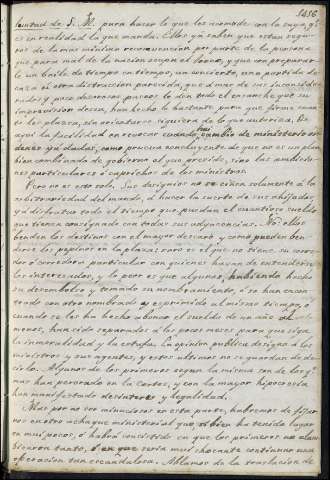 1456
luntad de S. M. para hacer lo que les acomode con la suya, qe
es en realidad la que manda. Ellos ya saben que estan segu-
ros de la mas minima reconvencion por parte de la persona
que para mal de la nacion ocupa el trono, y que con preparar-
le un baile de tiempo en tiempo, un concierto, una partida de
caza ú otra distraccion parecida, que á mas de sus incomodida-
des y poco decorosos pasos le dén todo el ensanche que su
imprevision desea, han hecho lo bastante para que firme cuan-
to les plazca, sin acordarse siquiera de lo que autoriza. De
aqui la facilidad en revocar cuando hai cambio de ministerio or-
denes ya dadas, como prueva concluyente de que no es un plan
bien combinado de gobierno el que preside, sino las ambicio-
nes particulares ó caprichos de los ministros.
Pero no es esto solo. Sus designios no se ciñen solamente á la
arbitrariedad del mando, á hacer la suerte de sus ahijados,
y á disfrutar todo el tiempo que puedan el cuantioso sueldo
que tienen consignado con todas sus adyacencias. No; ellos
benden los destinos con el mayor descaro y como pueden ben-
derse los pepinos en la plaza: raro es el que no tiene su corre-
dor ó corredora particular con quienes hayan de entenderse
los interesados, y lo peor es que algunos, habiendo hecho
su desembolso y tomado su nombramiento, ó se han encon-
trado con otro nombrado y esprimido al mismo tiempo, ó
cuando se les ha hecho abono el sueldo de un año de
menos, han sido separados á los pocos meses para que siga
la inmoralidad y la estafa. La opinion publica designa á los
ministros y sus agentes, y estos ultimos no se guardan de de-
cirlo. Algunos de los primeros segun la misma son de los qe
mas han perorado en las Cortes, y con la mayor hipocresia
han manifestado desinteres y legalidad.
Mas por no ser minuciosos en esta parte, habremos de fijar-
nos en otro achaque ministerial que si bien ha tenido lugar
en mui pocos, ó habrá consistido en que los primeros no
bicaron tanto, ó en que seria mui chocante continuar una
operacion tan escandalosa. Ablamos de la traslacion de